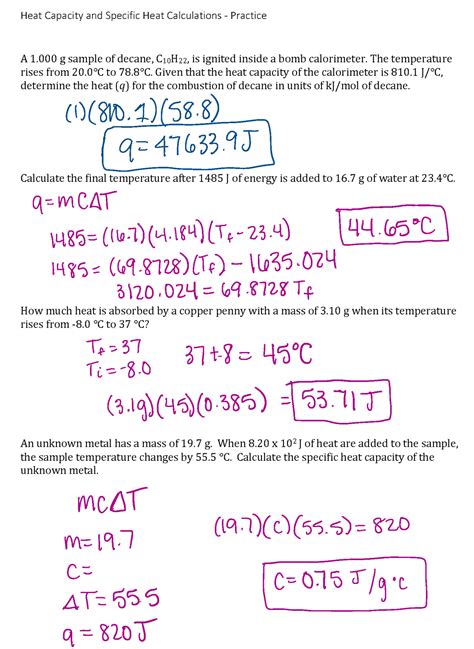 Heat Capacity and Specific Heat Calculations - Practice
A 1.000 g sample of decane, C₁₀H₂₂, is ignited inside a bomb calorimeter. The temperature
rises from 20.0°C to 78.8°C. Given that the heat capacity of the calorimeter is 810.1 J/°C,
determine the heat (q) for the combustion of decane in units of kJ/mol of decane.
(1)(810.1)(58.8)
q=47633.9J
Calculate the final temperature after 1485 J of energy is added to 16.7 g of water at 23.4°C.
q=mCΔT
1485=(16.7)(4.184)(Tf-23.4)
44.65°C
1485=(69.8728)(Tf)-1635.024
3120.024=69.8728Tf
How much heat is absorbed by a copper penny with a mass of 3.10 g when its temperature
rises from -8.0 °C to 37 °C?
Tf=37
Ti=-8.0
37+8=45°C
(3.1g)(45)(0.385) = 53.71J
An unknown metal has a mass of 19.7 g. When 8.20 x 10² J of heat are added to the sample,
the sample temperature changes by 55.5 °C. Calculate the specific heat capacity of the
unknown metal.
mcΔT
m=19.7
C=
ΔT=55.5
q=820J
(19.7)(C)(55.5)=820
C=0.75 J/g·c